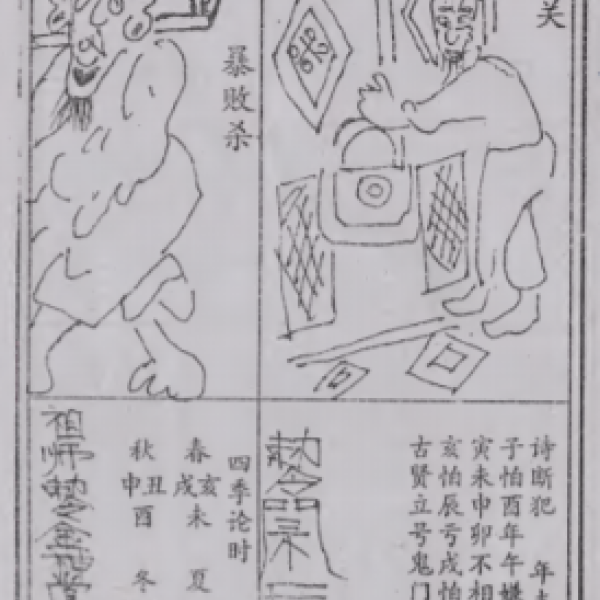 关
诗断犯 年
子怕酉年午嫌
寅未申卯不相
亥怕辰亏戌怕
古贤立号鬼门
敕令
暴败杀
四季论时
春亥戌未 夏
秋丑申酉 冬
祖师敕令